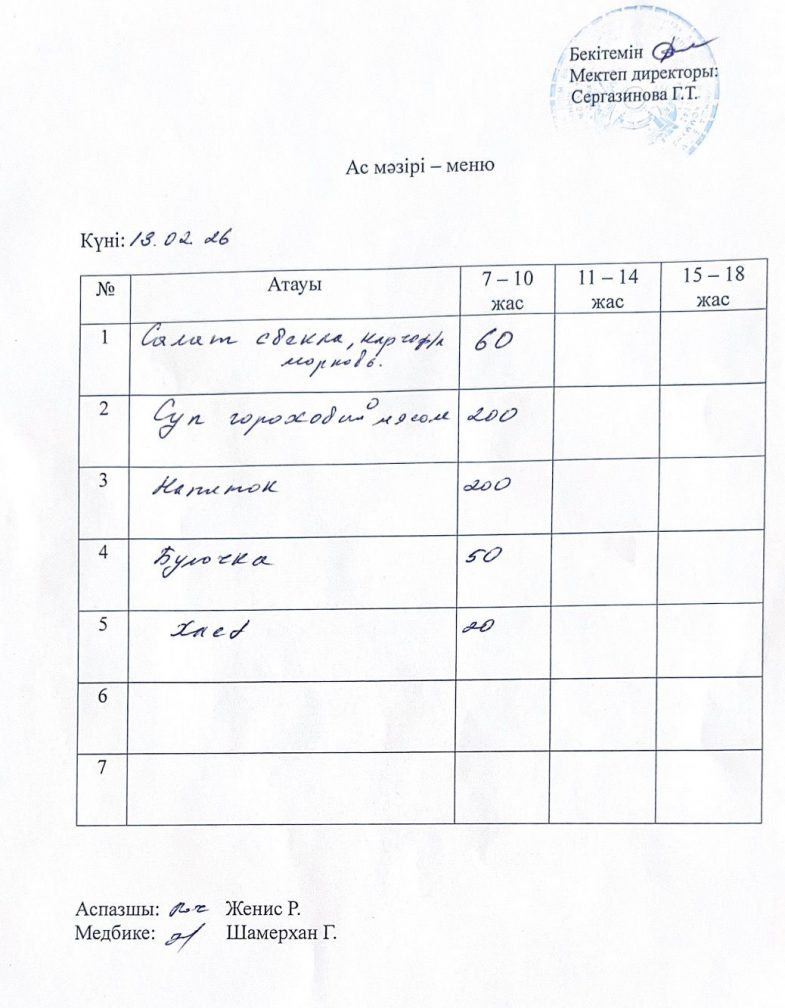 Бекітемін
Мектеп директоры:
Сергазинова Г.Т.
Ас мәзірі – меню
Күні: 13.02.26
№ Атауы 7 – 10 жас 11 – 14 жас 15 – 18 жас
1 Салат свекла, картоф/л 60
морковь.
2 Суп гороховый мясом 200
3 Напиток 200
4 Булочка 50
5 Хлеб 20
6
7
Аспазшы: Женис Р.
Медбике: Шамерхан Г.